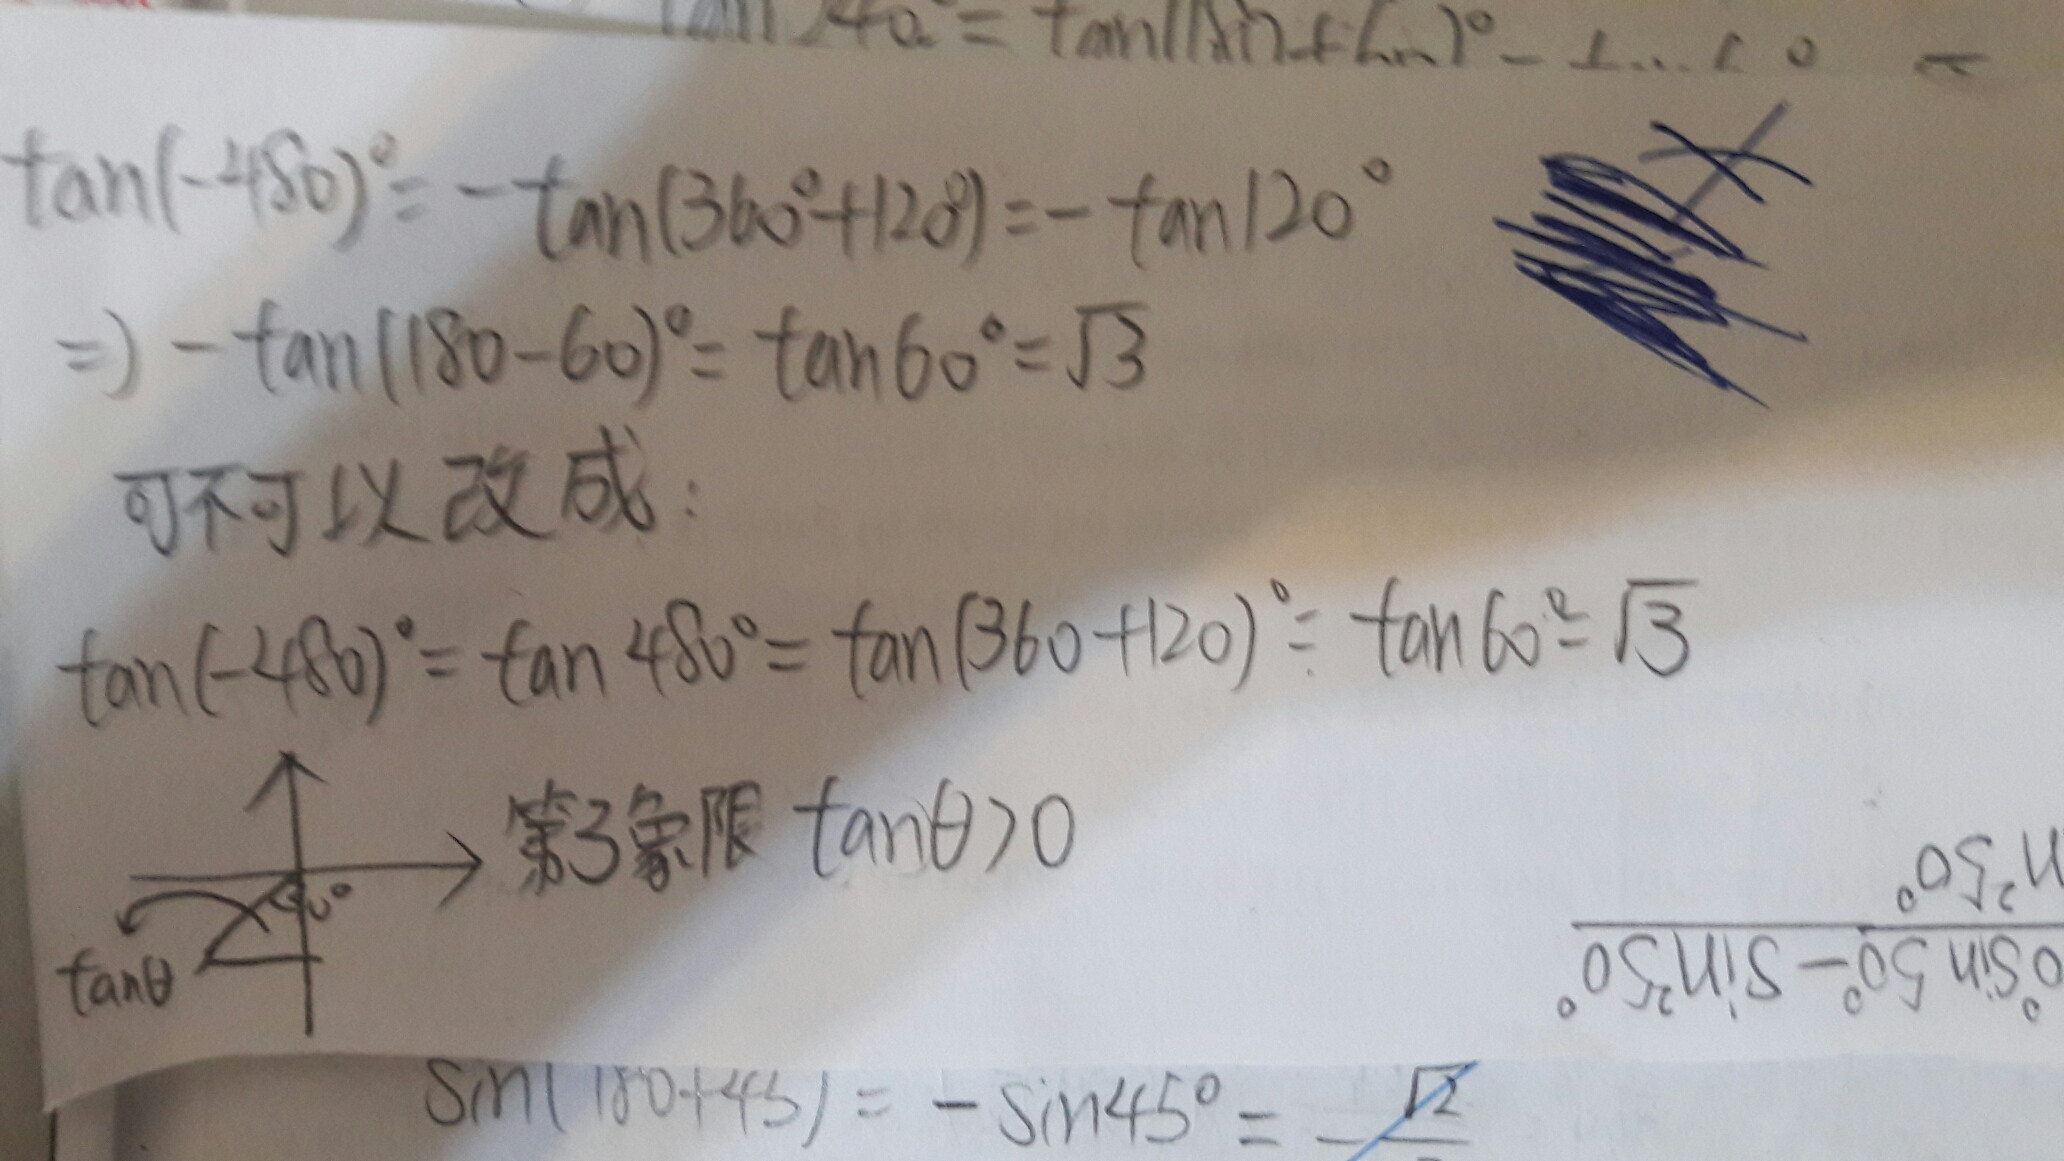 tan(-480)°= -tan(360°+120°)=- tan120°
=> -tan(180-60)°= tan60°=√3
可不可以改成:
tan(-480)°= tan 480°= tan(360+120)°= tan60°=√3
第3象限 tanθ>0
tanθ
sin 50°- sin²50°
sin(180+45)= -sin45°=